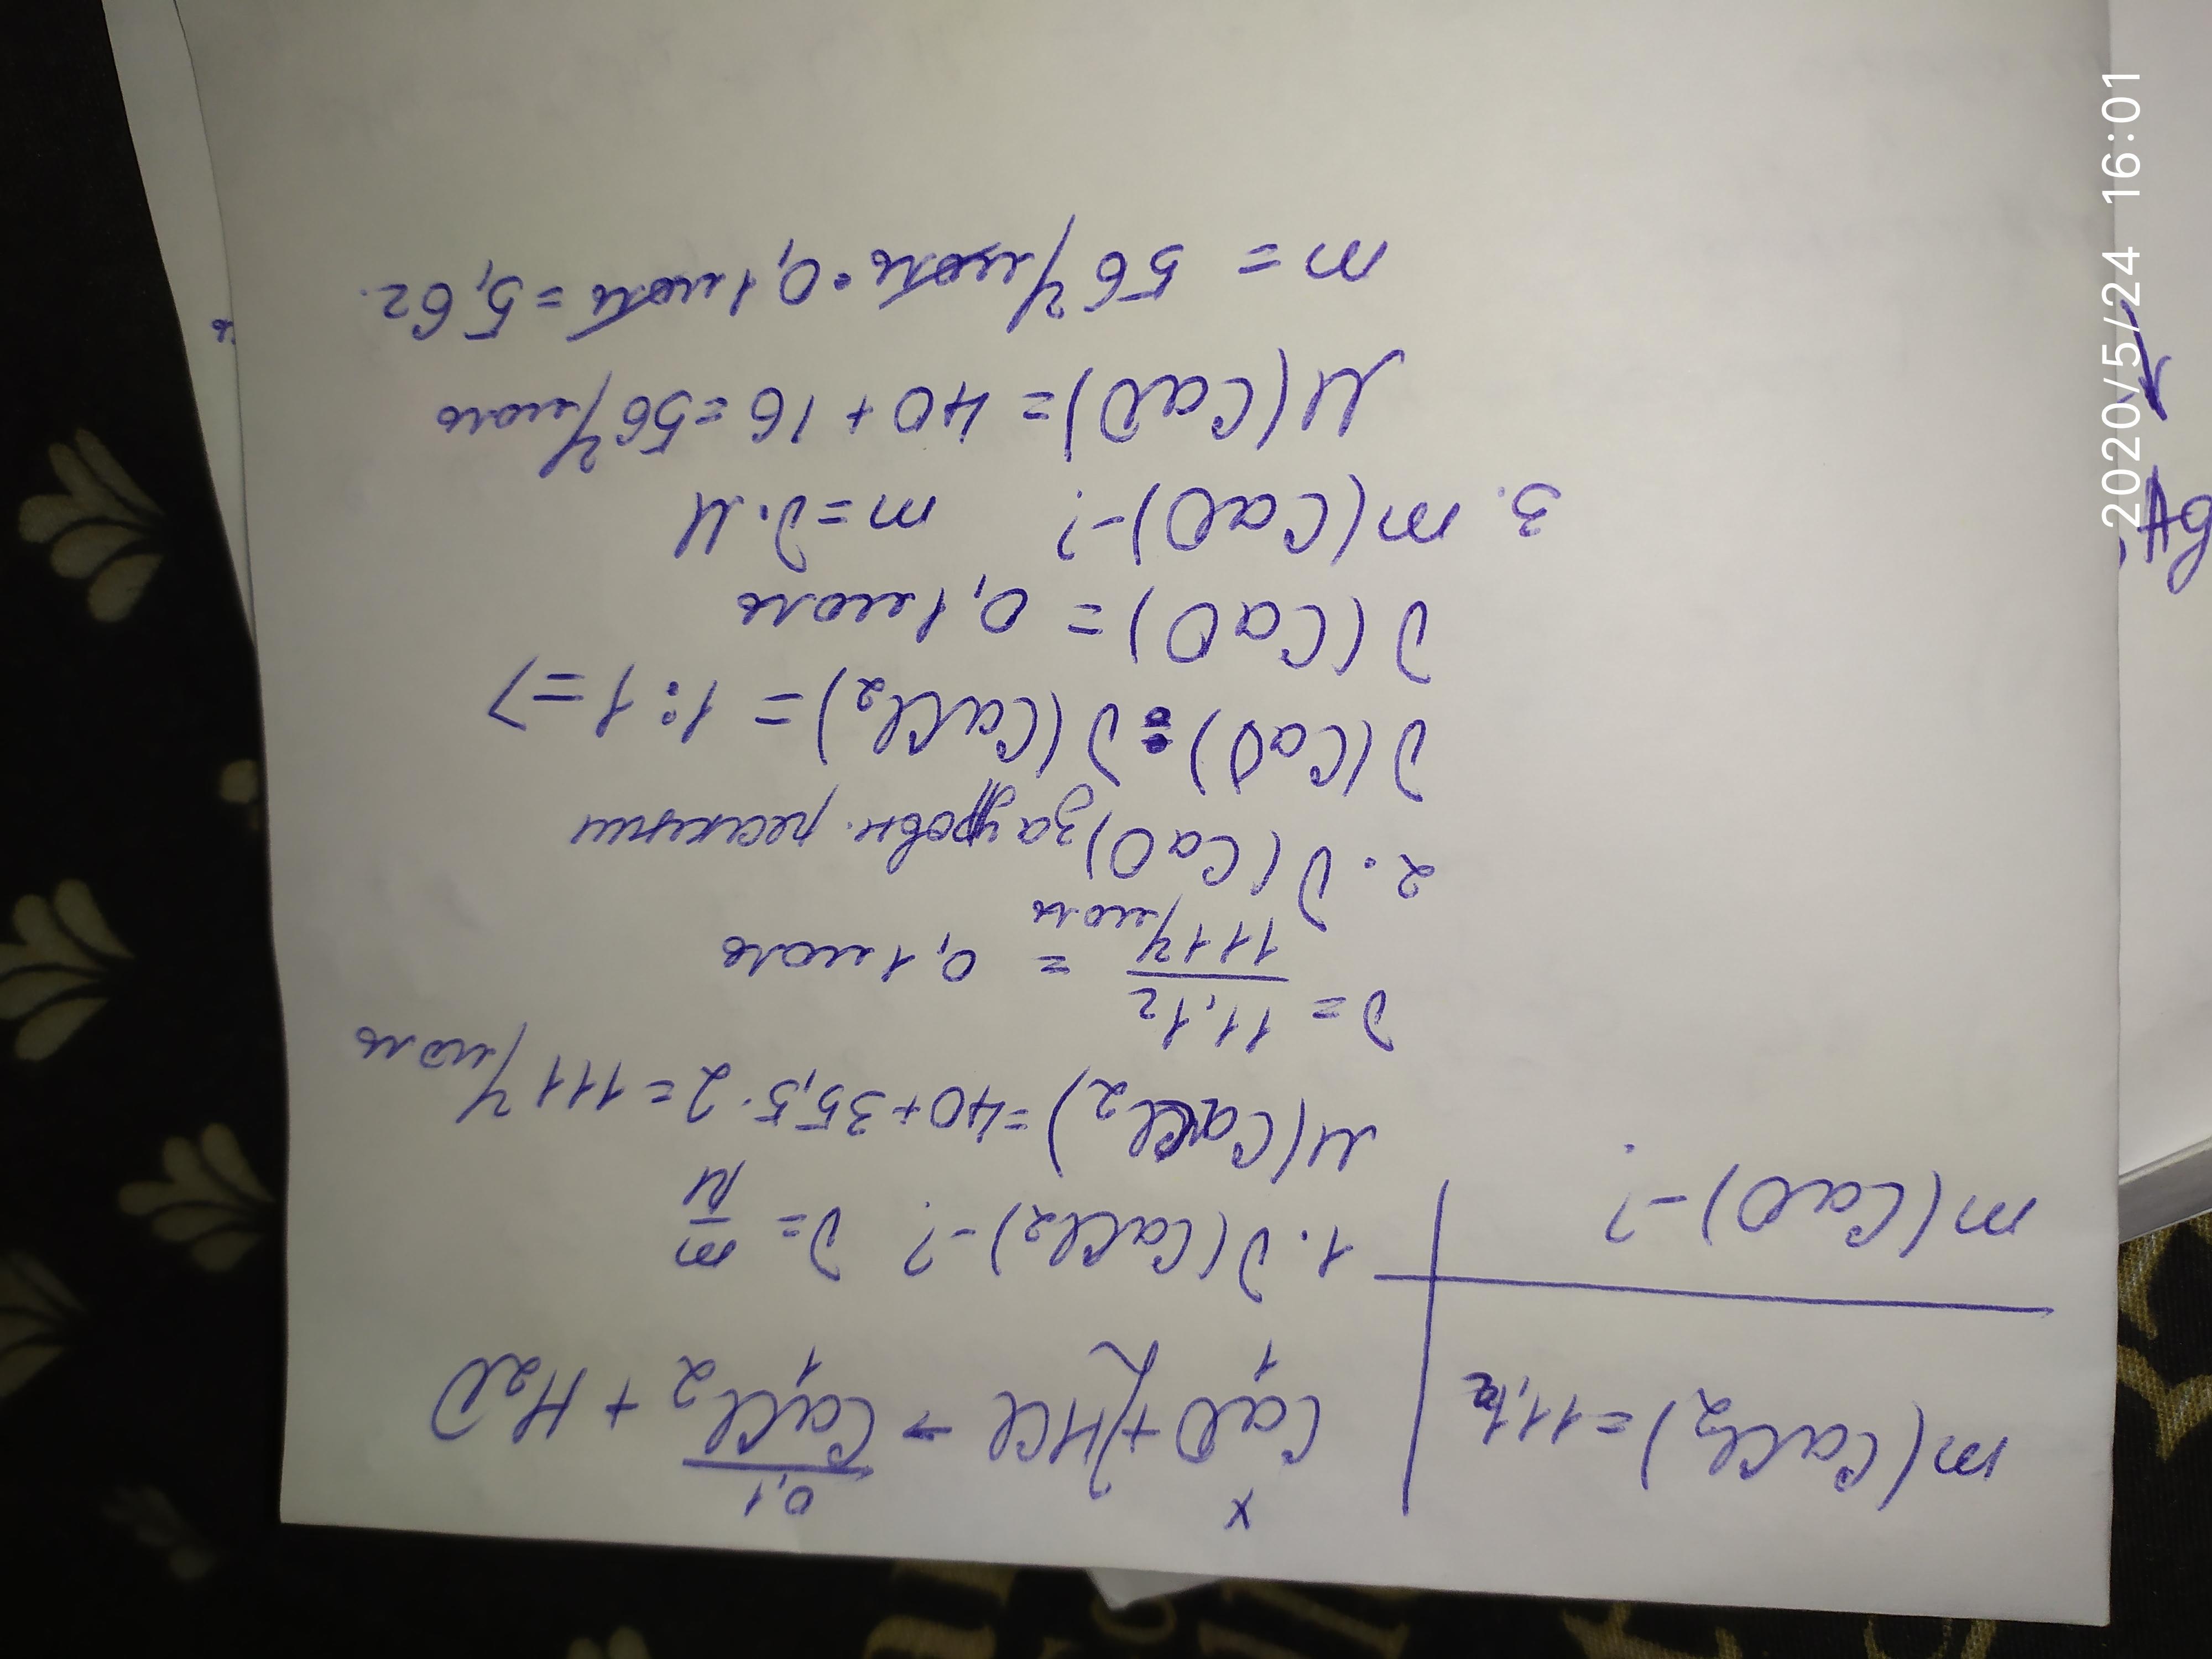 m(CaCl2) = 11,1г
m(CaO) - ?
x 0,1
CaO + 2HCl → CaCl2 + H2O
1 2 1
1. ν(CaCl2) - ? ν = m/M
M(CaCl2) = 40 + 35,5 · 2 = 111 г/моль
ν = 11,1г / 111 г/моль = 0,1 моль
2. ν(CaO) за уровн. реакции
ν(CaO) : ν(CaCl2) = 1 : 1 =>
ν(CaO) = 0,1 моль
3. m(CaO) - ? m = ν · M
M(CaO) = 40 + 16 = 56 г/моль
m = 56 г/моль · 0,1 моль = 5,6г.
2020/5/24 16:01